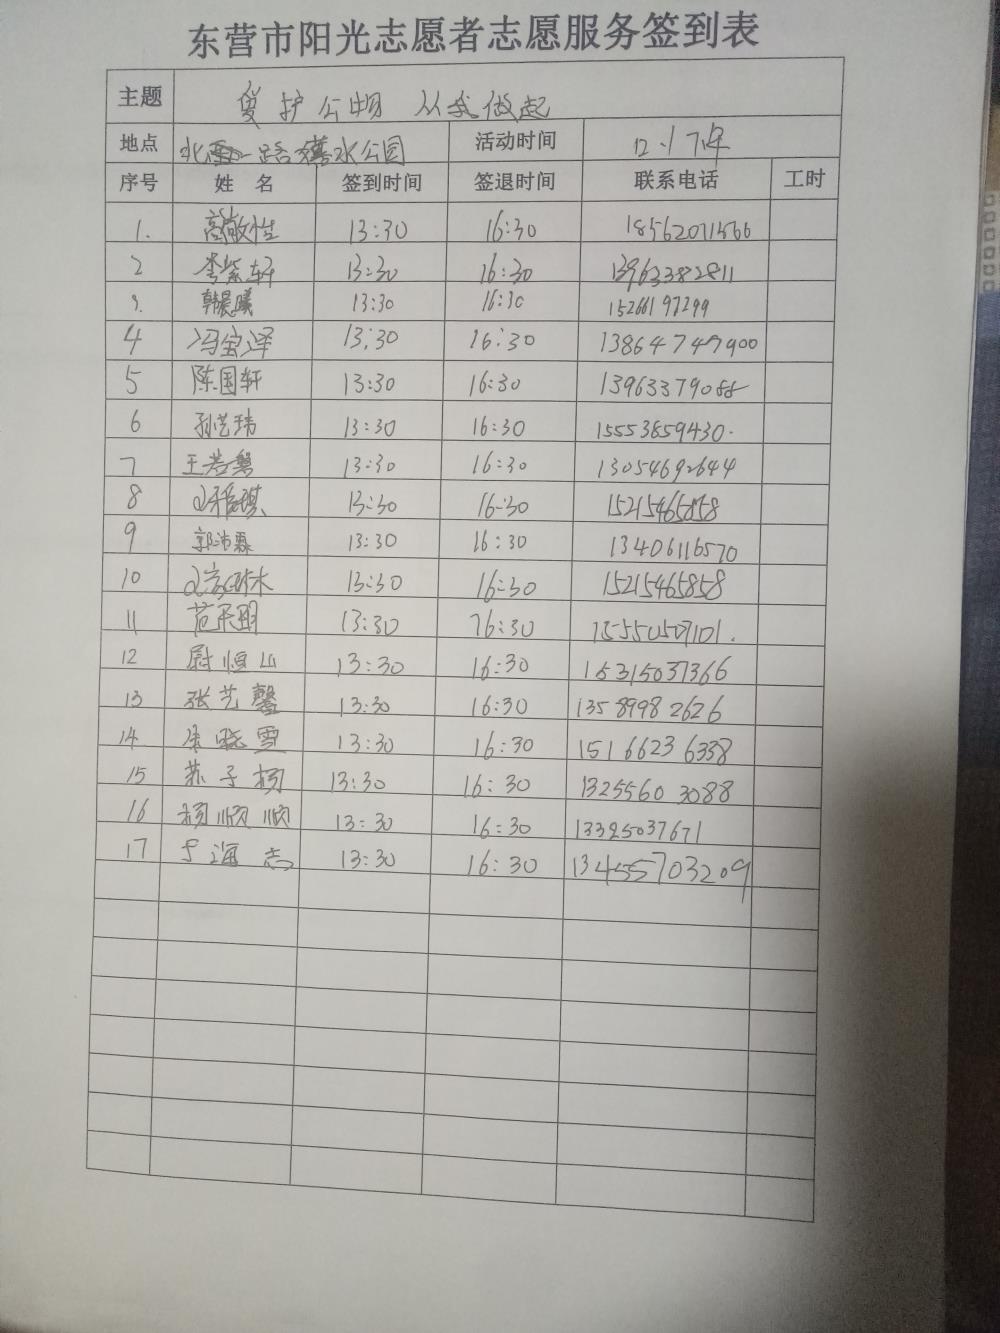 东营市阳光志愿者志愿服务签到表
主题 爱护公物 从我做起
地点 北一路 水公园 活动时间 12.17
序号 姓 名 签到时间 签退时间 联系电话 工时
1. 高敬恒 13:30 16:30
2 李紫轩 13:30 16:30 13963382811
3. 韩晨曦 13:30 16:30 15266197299
4 冯宝泽 13:30 16:30 13864747900
5 陈国轩 13:30 16:30 13963379088
6 孙艺玮 13:30 16:30 15553859430.
7 王若馨 13:30 16:30 13054692644
8 13:30 16:30 15215465858
9 郭沛霖 13:30 16:30 13406116570
10 13:30 16:30 15215465858
11 范承明 13:30 16:30 15550507101.
12 尉恒山 13:30 16:30 15315037366
13 张艺馨 13:30 16:30 13589982626
14 晓雪 13:30 16:30 15166236338
15 苏子杨 13:30 16:30 13255603088
16 杨顺顺 13:30 16:30 13325037671
17 于海志 13:30 16:30 13455703209